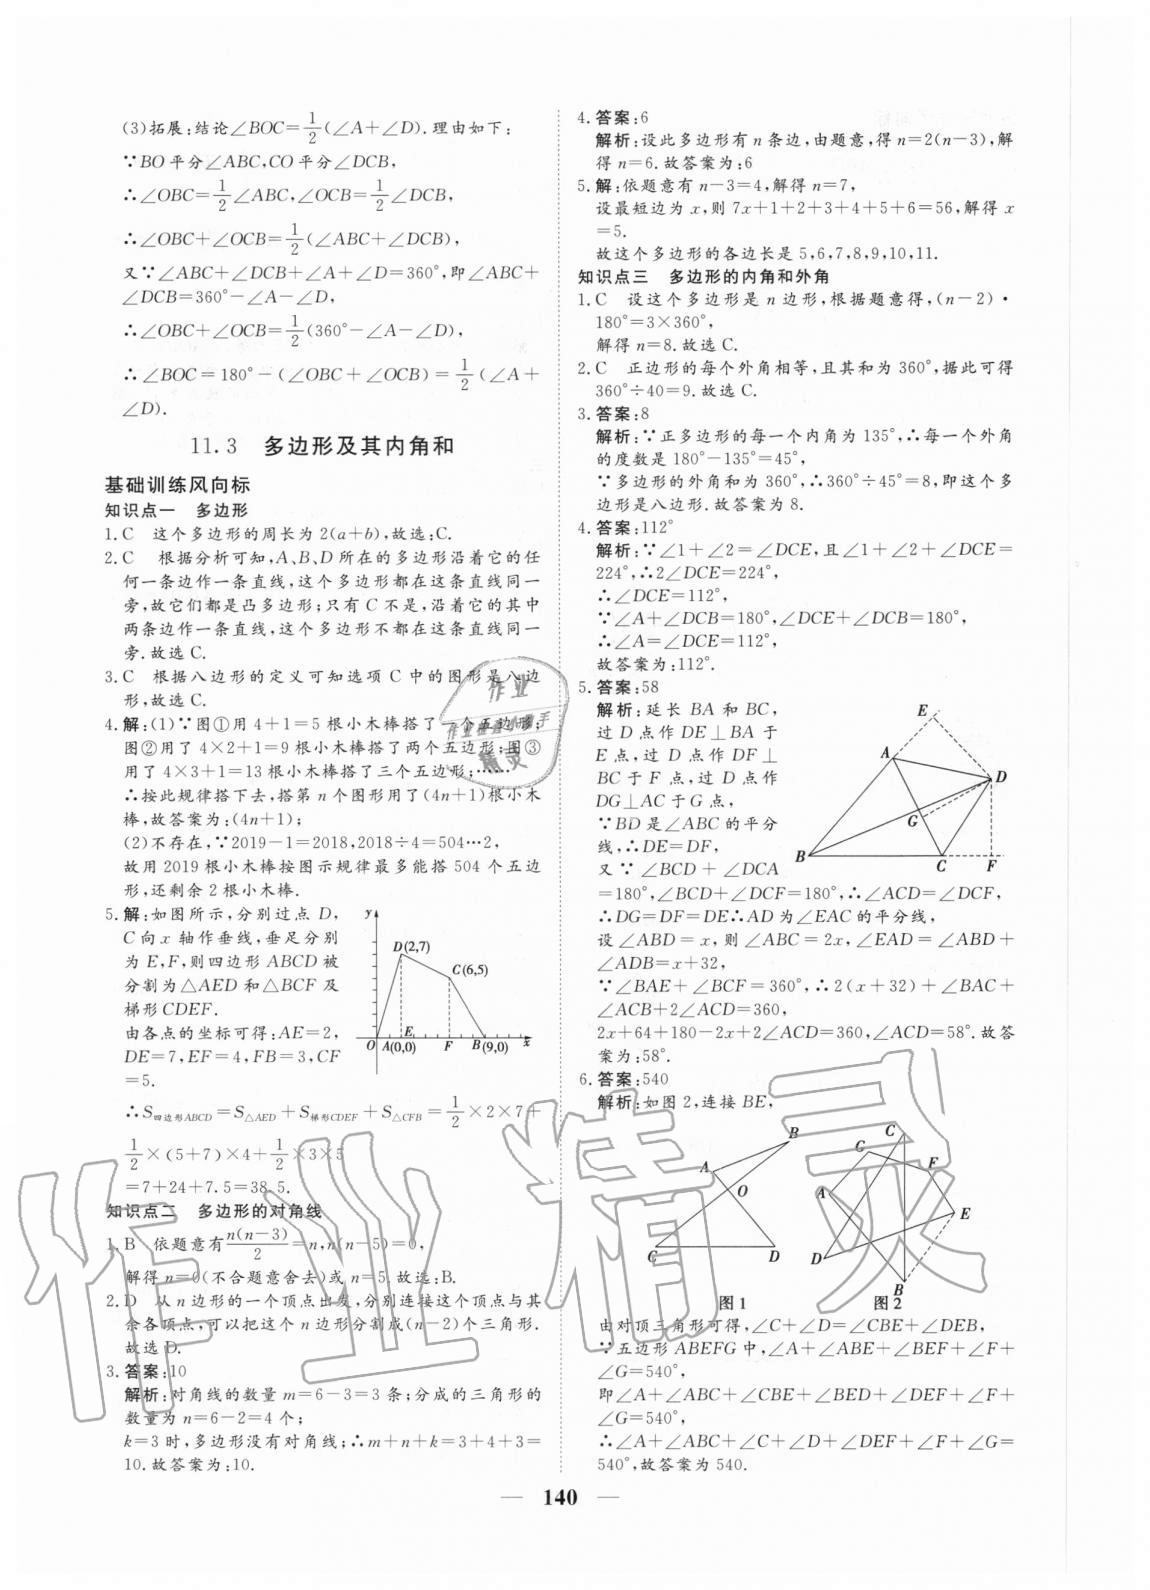 (3)拓展:结论∠BOC=1/2(∠A+∠D).理由如下:
∵BO平分∠ABC,CO平分∠DCB,
∴∠OBC=1/2∠ABC,∠OCB=1/2∠DCB,
∴∠OBC+∠OCB=1/2(∠ABC+∠DCB),
又∵∠ABC+∠DCB+∠A+∠D=360°,即∠ABC+
∠DCB=360°-∠A-∠D,
∴∠OBC+∠OCB=1/2(360°-∠A-∠D),
∴∠BOC=180°-(∠OBC+∠OCB)=1/2(∠A+
∠D).
11.3 多边形及其内角和
基础训练风向标
知识点一 多边形
1.C 这个多边形的周长为2(a+b),故选:C.
2.C 根据分析可知,A、B、D所在的多边形沿着它的任
何一条边作一条直线,这个多边形都在这条直线同一
旁,故它们都是凸多边形;只有C不是,沿着它的其中
两条边作一条直线,这个多边形不都在这条直线同一
旁.故选C.
3.C 根据八边形的定义可知选项C中的图形是八边
形,故选C.
4.解:(1)∵图①用4+1=5根小木棒搭了一个五边形;
图②用了4×2+1=9根小木棒搭了两个五边形;图③
用了4×3+1=13根小木棒搭了三个五边形;……
∴按此规律搭下去,搭第n个图形用了(4n+1)根小木
棒,故答案为:(4n+1);
(2)不存在,∵2019-1=2018,2018÷4=504…2,
故用2019根小木棒按图示规律最多能搭504个五边
形,还剩余2根小木棒.
5.解:如图所示,分别过点D,
C向x轴作垂线,垂足分别
为E,F,则四边形ABCD被
分割为△AED和△BCF及
梯形CDEF.
由各点的坐标可得:AE=2,
DE=7,EF=4,FB=3,CF
=5.
y
D(2,7)
C(6,5)
O A(0,0) E F B(9,0) x
∴S四边形ABCD=S△AED+S梯形CDEF+S△CFB=1/2×2×7+
1/2×(5+7)×4+1/2×3×5
=7+24+7.5=38.5.
知识点二 多边形的对角线
1.B 依题意有n(n-3)/2=n,n(n-5)=0,
解得n=0(不合题意舍去)或n=5.故选:B.
2.D 从n边形的一个顶点出发,分别连接这个顶点与其
余各顶点,可以把这个n边形分割成(n-2)个三角形.
故选D.
3.答案:10
解析:对角线的数量m=6-3=3条;分成的三角形的
数量为n=6-2=4个;
k=3时,多边形没有对角线;∴m+n+k=3+4+3=
10.故答案为:10.
4.答案:6
解析:设此多边形有n条边,由题意,得n=2(n-3),解
得n=6.故答案为:6
5.解:依题意有n-3=4,解得n=7,
设最短边为x,则7x+1+2+3+4+5+6=56,解得x
=5.
故这个多边形的各边长是5,6,7,8,9,10,11.
知识点三 多边形的内角和外角
1.C 设这个多边形是n边形,根据题意得,(n-2)·
180°=3×360°,
解得n=8.故选C.
2.C 正边形的每个外角相等,且其和为360°,据此可得
360°÷40=9.故选C.
3.答案:8
解析:∵正多边形的每一个内角为135°,∴每一个外角
的度数是180°-135°=45°,
∵多边形的外角和为360°,∴360°÷45°=8,即这个多
边形是八边形.故答案为8.
4.答案:112°
解析:∵∠1+∠2=∠DCE,且∠1+∠2+∠DCE=
224°,∴2∠DCE=224°,
∴∠DCE=112°,
∵∠A+∠DCB=180°,∠DCE+∠DCB=180°,
∴∠A=∠DCE=112°,
故答案为:112°.
5.答案:58
解析:延长BA和BC,
过D点作DE⊥BA于
E点,过D点作DF⊥
BC于F点,过D点作
DG⊥AC于G点,
∵BD是∠ABC的平分
线,∴DE=DF,
又∵∠BCD+∠DCA
E
A
D
G
B
C
F
=180°,∠BCD+∠DCF=180°,∴∠ACD=∠DCF,
∴DG=DF=DE∴AD为∠EAC的平分线,
设∠ABD=x,则∠ABC=2x,∠EAD=∠ABD+
∠ADB=x+32,
∵∠BAE+∠BCF=360°,∴2(x+32)+∠BAC+
∠ACB+2∠ACD=360,
2x+64+180-2x+2∠ACD=360,∠ACD=58°.故答
案为:58°.
6.答案:540
解析:如图2,连接BE,
B
A
O
C
D
图1
C
G
F
A
E
D
B
图2
由对顶三角形可得,∠C+∠D=∠CBE+∠DEB,
∵五边形ABEFG中,∠A+∠ABE+∠BEF+∠F+
∠G=540°,
即∠A+∠ABC+∠CBE+∠BED+∠DEF+∠F+
∠G=540°,
∴∠A+∠ABC+∠C+∠D+∠DEF+∠F+∠G=
540°,故答案为540.
— 140 —
作业
作业检查小能手
精灵
作业精灵